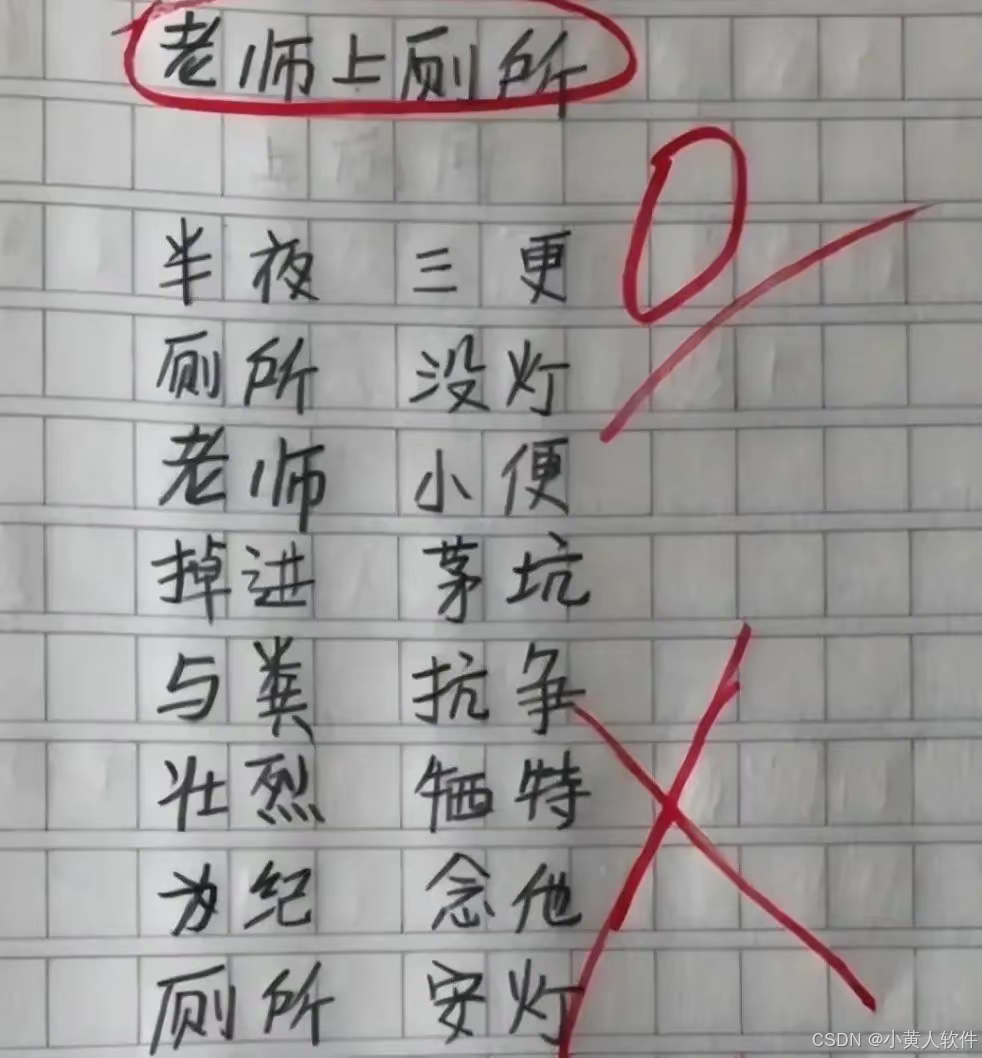 老师上厕所
0
半夜 三更
厕所 没灯
老师 小便
掉进 茅坑
与粪 抗争
壮烈 牺特
为纪 念他
厕所 安灯
CSDN @小黄人软件